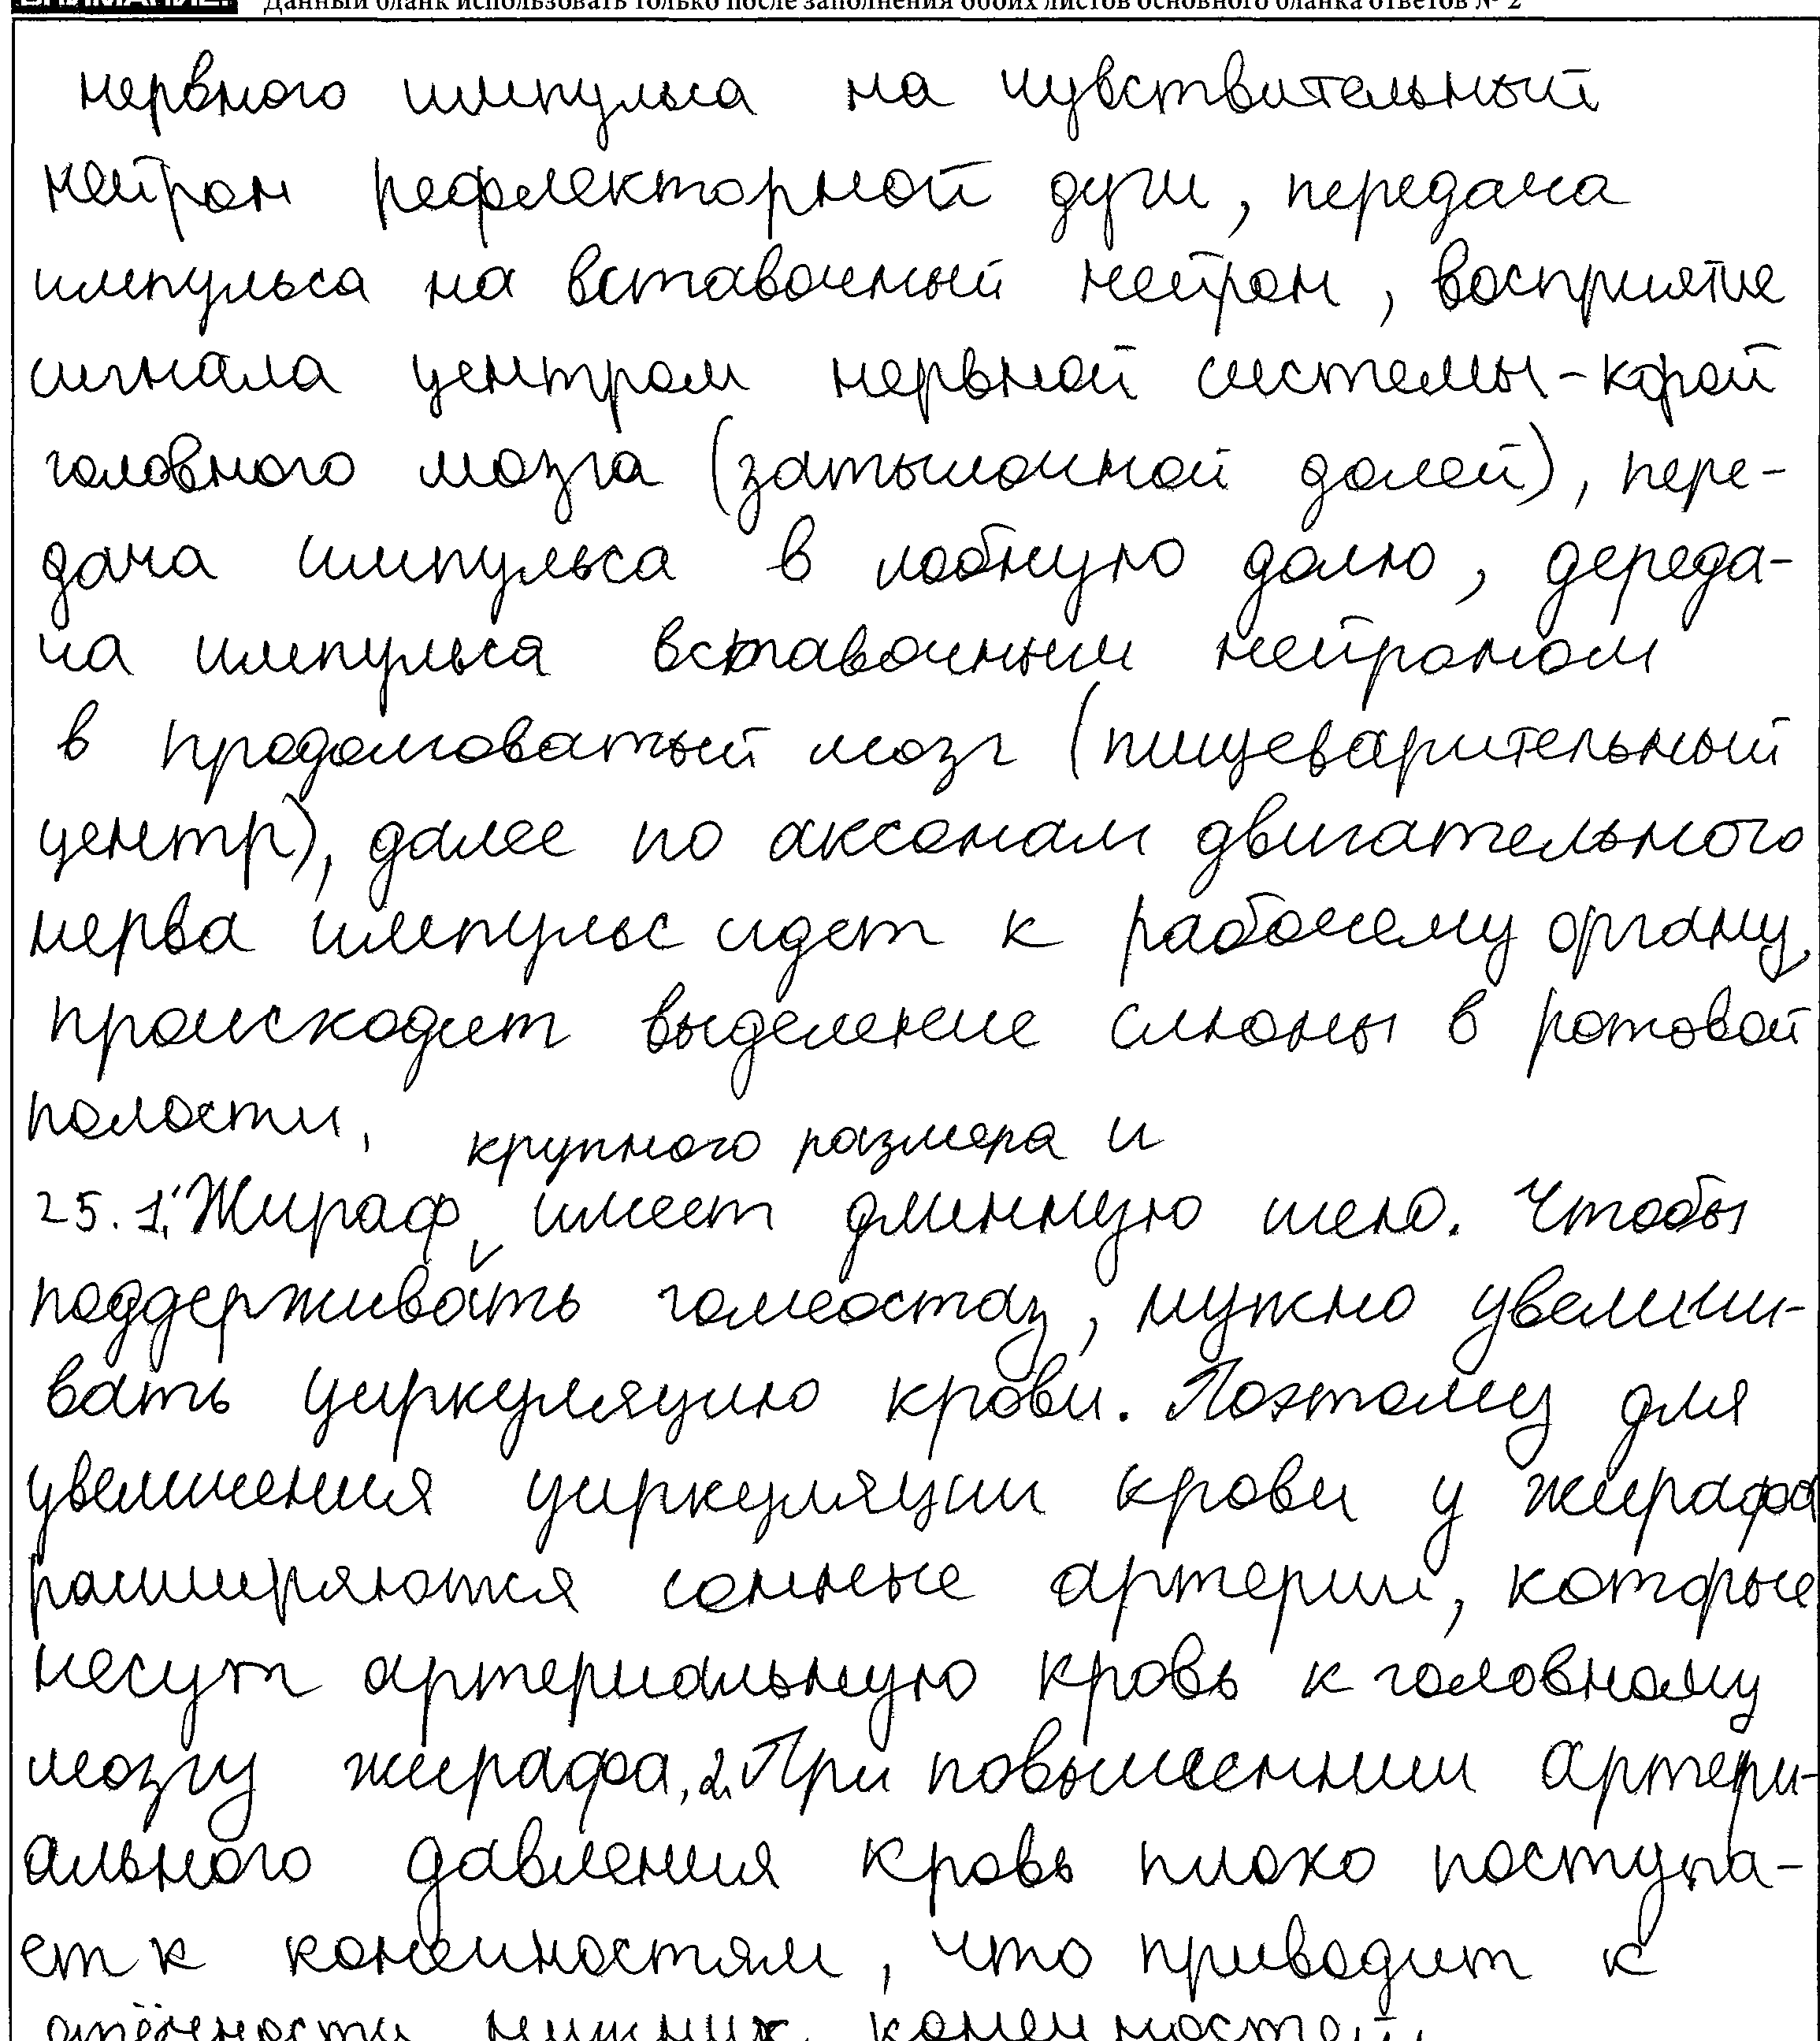 ВНИМАНИЕ! Данный бланк использовать только после заполнения обоих листов основного бланка ответов № 2
нервного импульса на чувствительный
нейрон рефлекторной дуги, передача
импульса на вставочный нейрон, восприятие
сигнала центром нервной системы - корой
головного мозга (затылочной долей), пере-
дача импульса в лобную долю, дереда-
ча импульса вставочным нейроном
в продолговатый мозг (пищеварительный
центр), далее по аксонам двигательного
нерва импульс идет к рабочему органу,
происходит выделение слюны в ротовой
полости.
крупного размера и
25. 1. Жираф имеет длинную шею. Чтобы
поддерживать гомеостаз, нужно увеличи-
вать циркуляцию крови. Поэтому для
увеличения циркуляции крови у жирафа
расширяются сонные артерии, которые
несут артериальную кровь к головному
мозгу жирафа, 2. При повышеннии артери-
ального давления кровь плохо поступа-
ет к конечностям, что приводит к
отёчности нижних конечностей